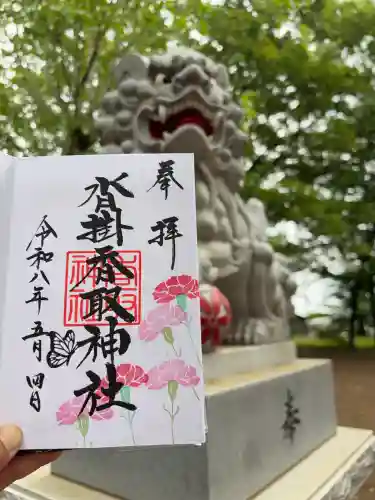 奉拝
沓掛香取神社
令和八年五月四日
奉